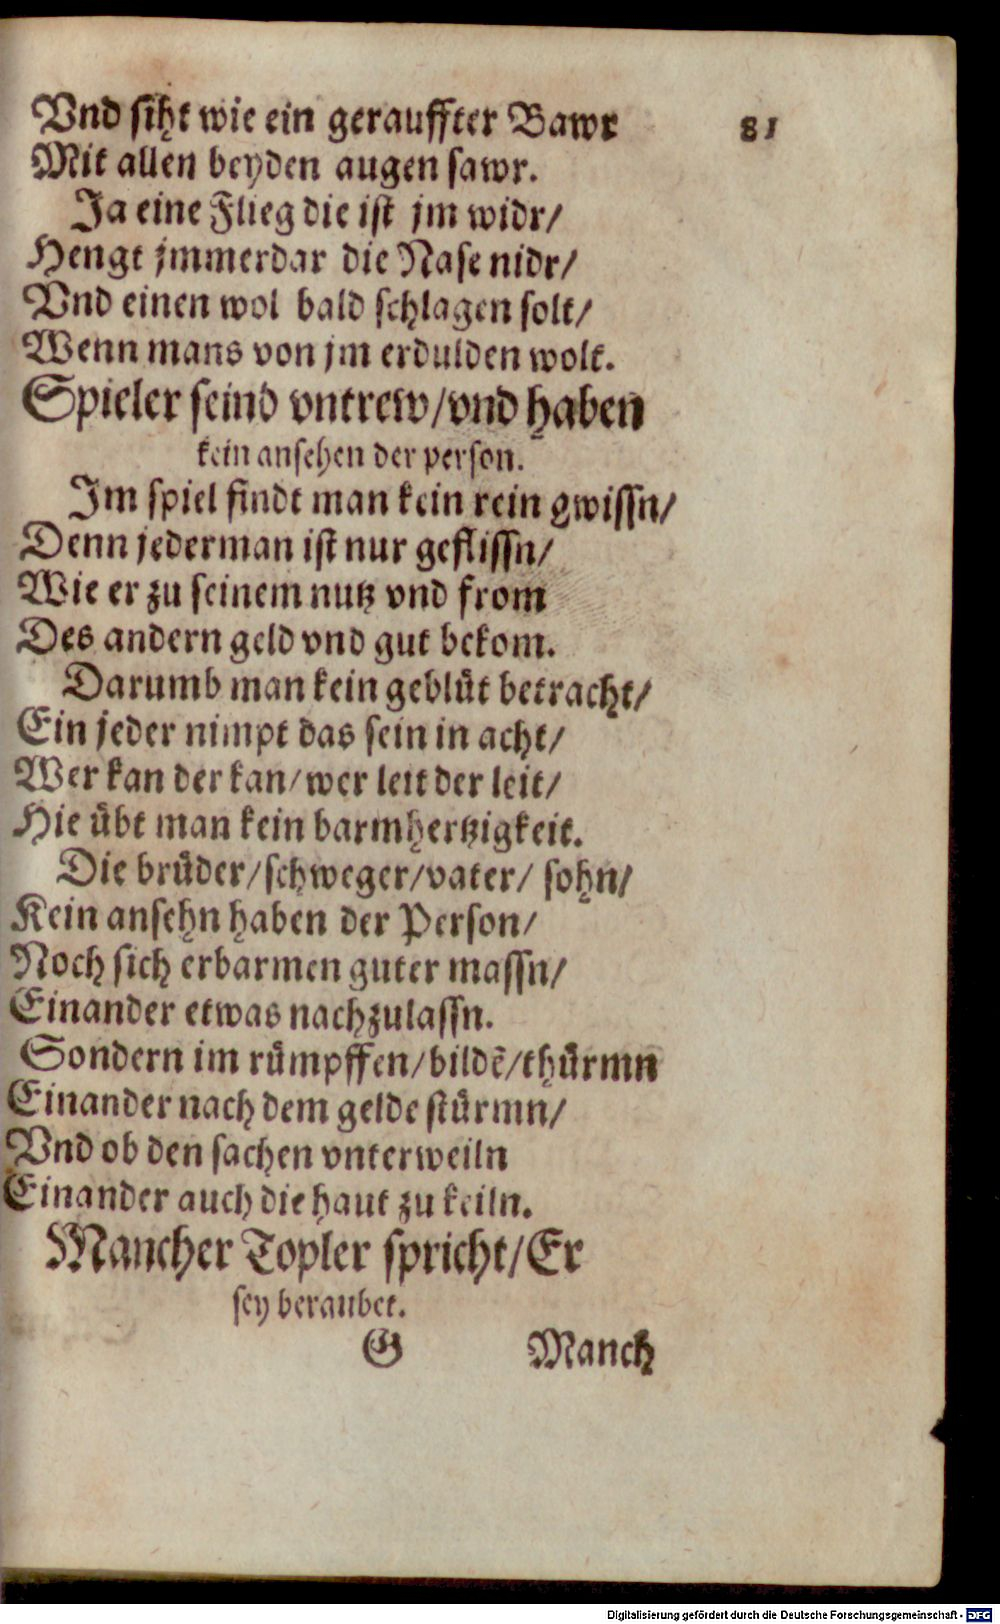 Vnd siht wie ein gerauffter Bawr 81
Mit allen beyden augen sawr.
Ja eine Flieg die ist jm widr/
Hengt jmmerdar die Nase nidr/
Vnd einen wol bald schlagen solt/
Wenn mans von jm erdulden wolt.
Spieler seind vntrew/vnd haben
kein ansehen der person.
Im spiel findt man kein rein gwissn/
Denn jederman ist nur geflissn/
Wie er zu seinem nutz vnd from
Des andern geld vnd gut bekom.
Darumb man kein geblüt betracht/
Ein jeder nimpt das sein in acht/
Wer kan der kan/wer leit der leit/
Hie übt man kein barmhertzigkeit.
Die brüder/schweger/vater/ sohn/
Kein ansehn haben der Person/
Noch sich erbarmen guter massn/
Einander etwas nachzulassn.
Sondern im rümpffen/bildẽ/thürmn
Einander nach dem gelde stürmn/
Vnd ob den sachen vnterweiln
Einander auch die haut zu keiln.
Mancher Topler spricht/Er
sey beraubet.
G Manch
Digitalisierung gefördert durch die Deutsche Forschungsgemeinschaft - DFG